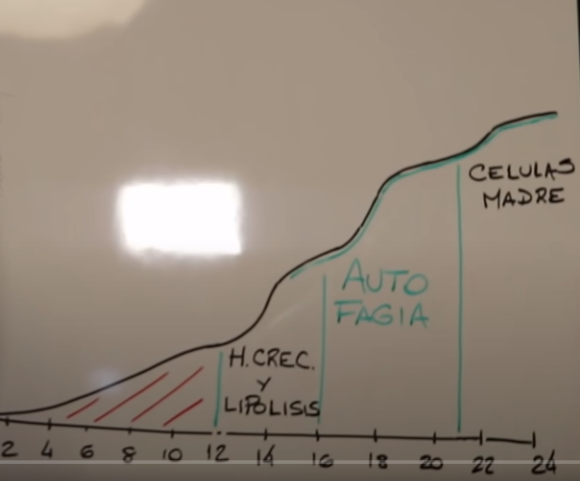 CELULAS
MADRE
AUTO
FAGIA
H.CREC.
Y
LIPOLISIS
2 4 6 8 10 12 14 16 18 20 22 24